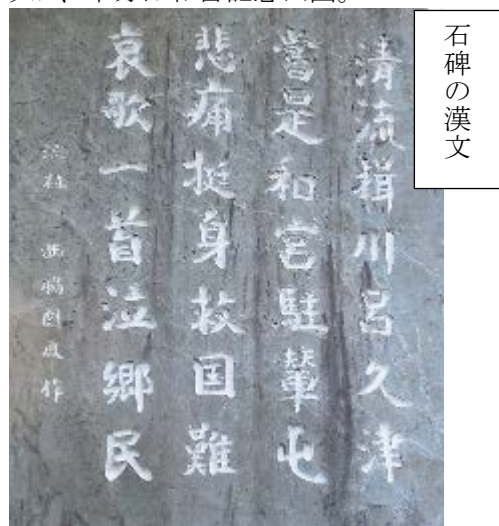 石碑の漢文
清流揖川呂久津
嘗是和宮駐輦屯
悲痛挺身救国難
哀歌一首泣郷民
作